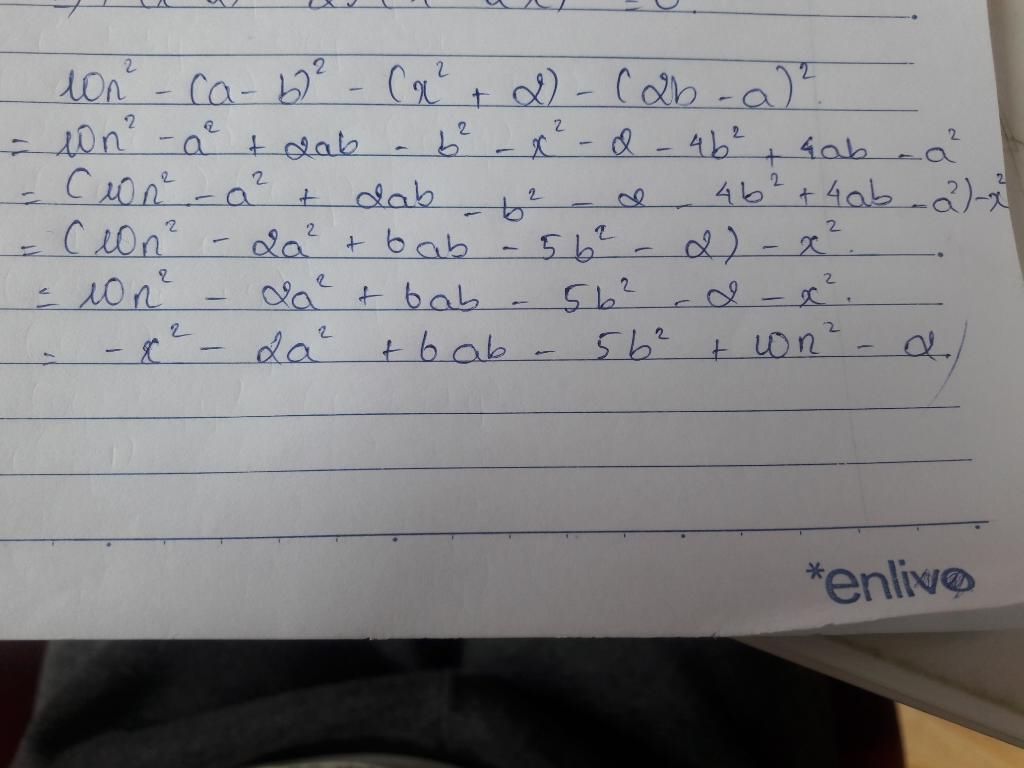 10n² - (a - b)² - (x² + 2) - (2b - a)².
= 10n² - a² + 2ab - b² - x² - 2 - 4b² + 4ab - a²
= (10n² - a² + 2ab - b² - 2 - 4b² + 4ab - a²) - x²
= (10n² - 2a² + 6ab - 5b² - 2) - x².
= 10n² - 2a² + 6ab - 5b² - 2 - x².
= - x² - 2a² + 6ab - 5b² + 10n² - 2.
*enlivo